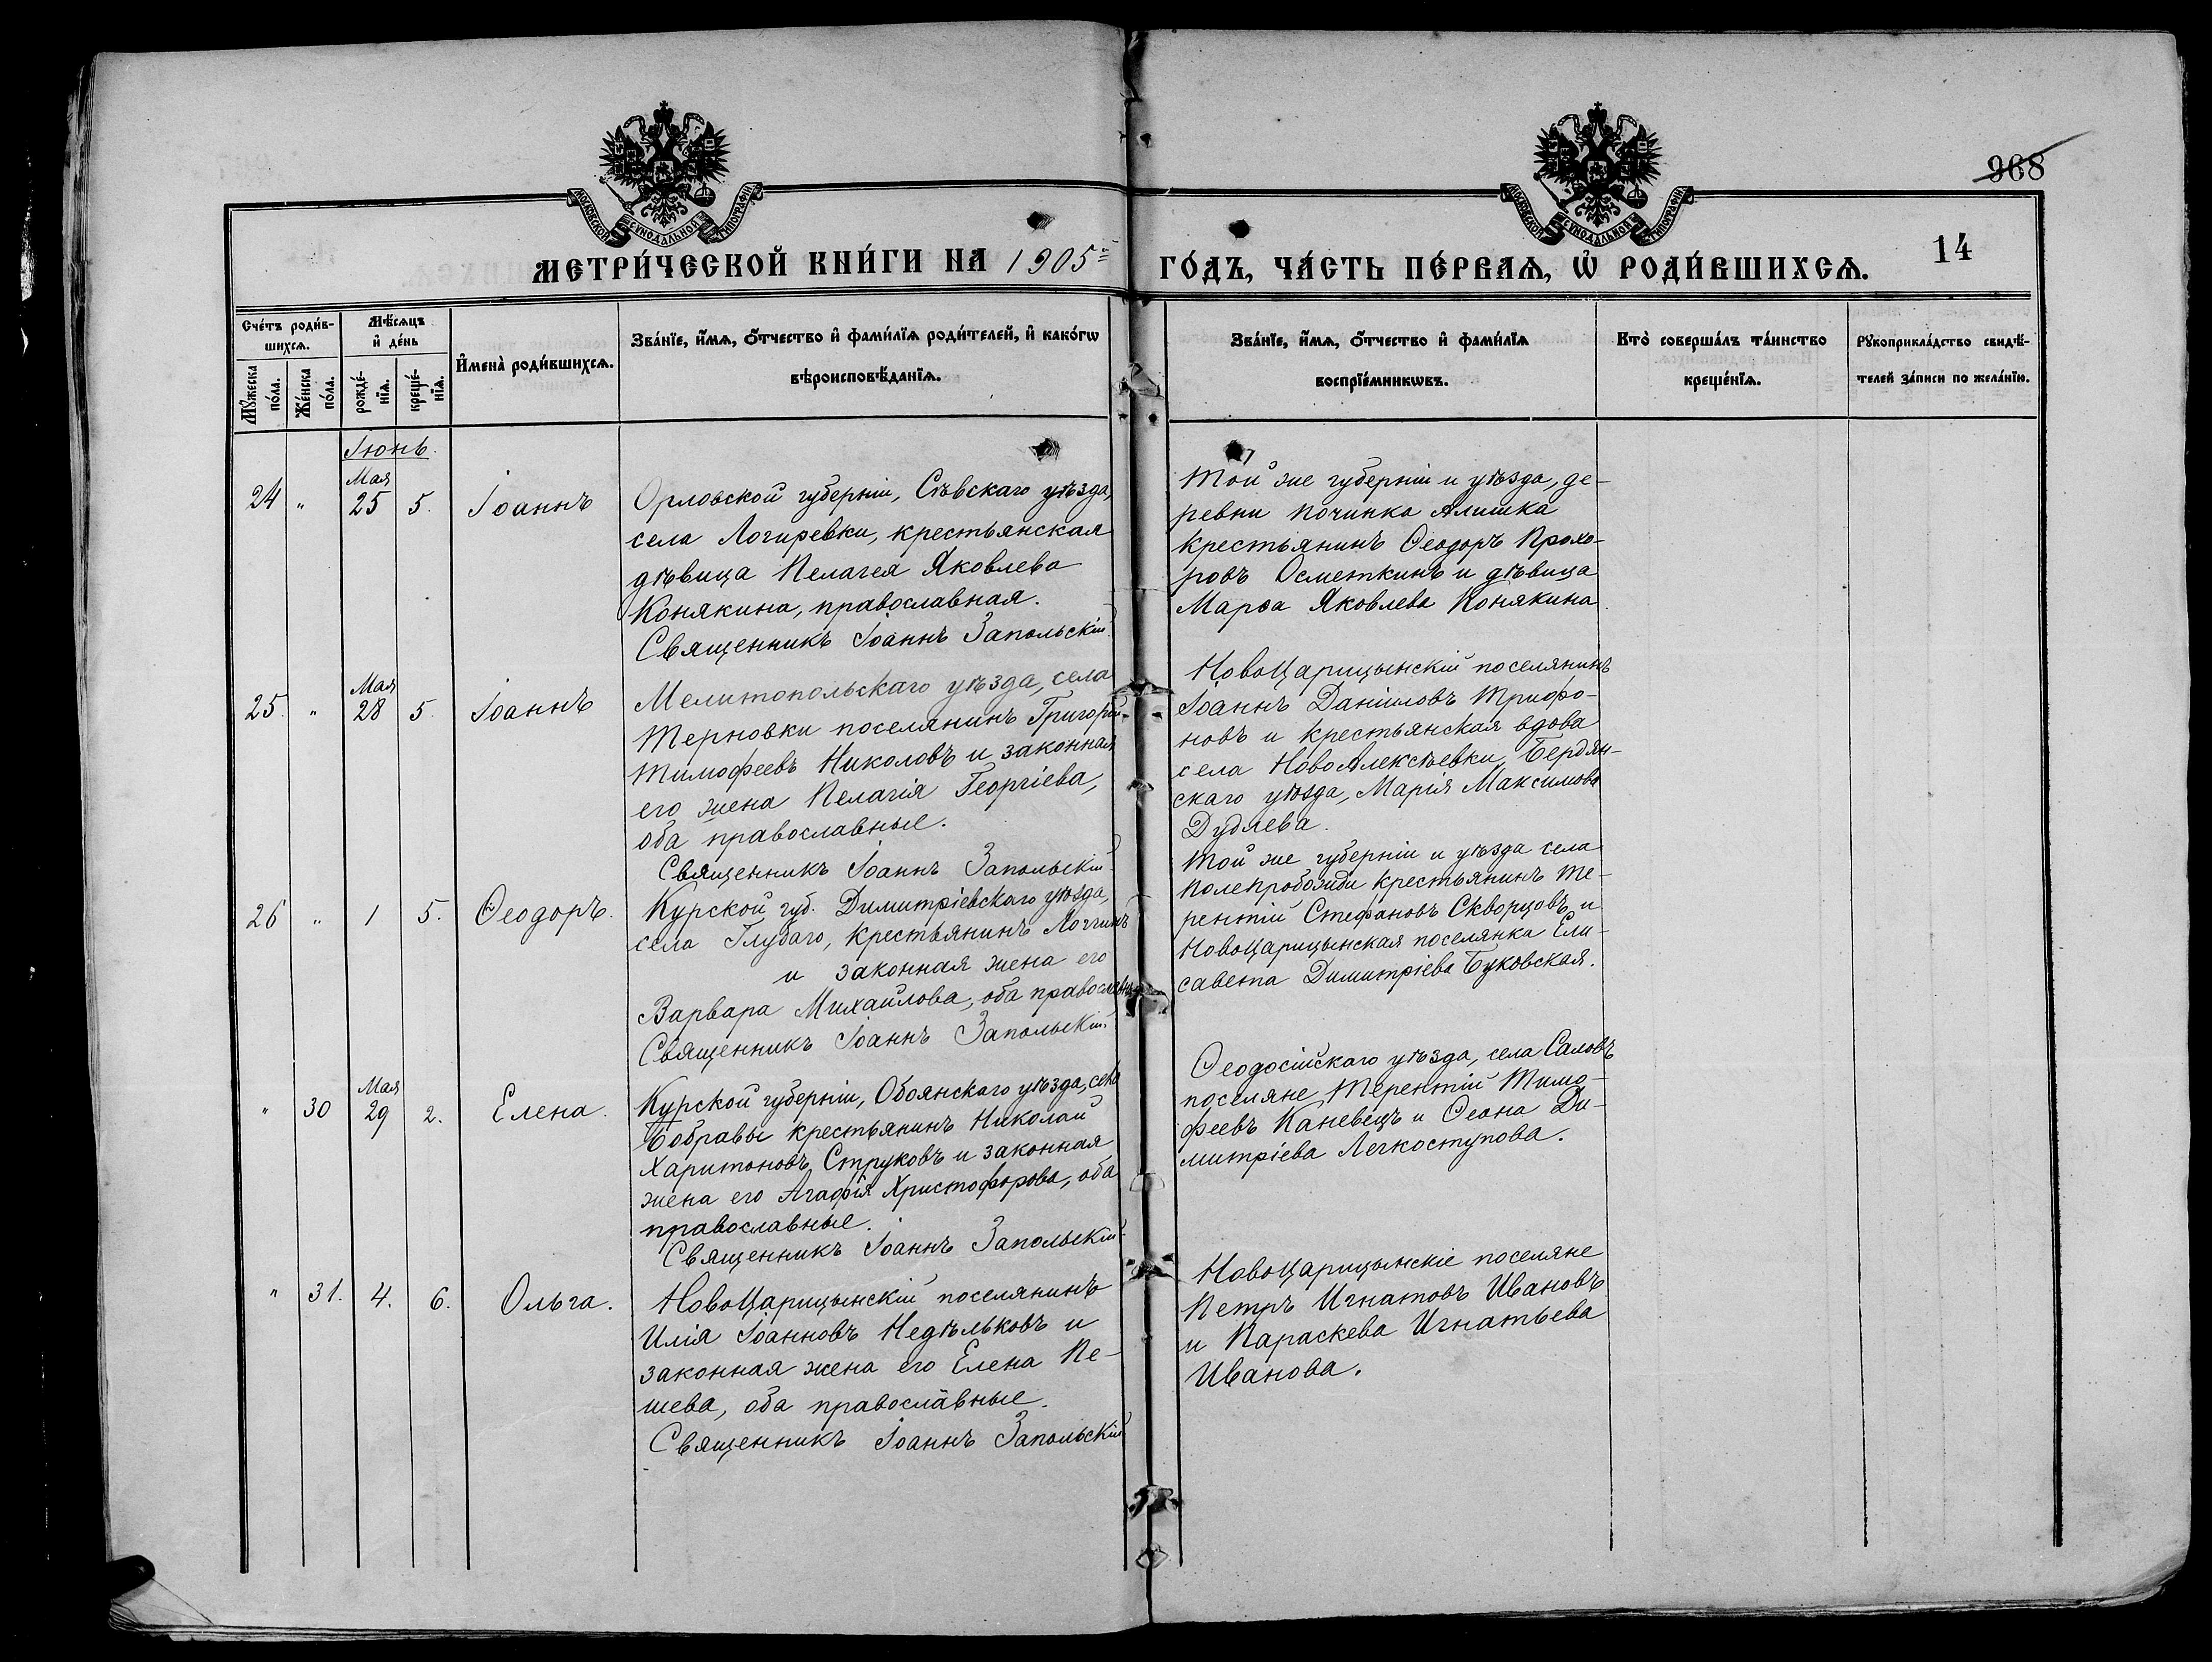 968
14
МОСКОВСКОЙ СѴНОДАЛЬНОЙ ТИПОГРАФІИ
МОСКОВСКОЙ СѴНОДАЛЬНОЙ ТИПОГРАФІИ
МЕТРИ́ЧЕСКОЙ КНИ́ГИ НА 1905й ГО́ДЪ, ЧА́СТЬ ПЕ́РВАѦ, Ѡ҆ РОДИ́ВШИХСѦ.
Сче́тъ роди́в-
шихсѧ.
Мꙋ́жеска
по́ла.
Же́нска
по́ла.
Мѣ́сѧцъ
и҆ де́нь
рожде́-
нїѧ.
креще́-
нїѧ.
И҆мена̀ роди́вшихсѧ.
Зва́нїе, и҆́мѧ, о҆́тчество и҆ фами́лїѧ роди́телей, и҆ како́гѡ
вѣроисповѣ́данїѧ.
Зва́нїе, и҆́мѧ, о҆́тчество и҆ фами́лїѧ
воспрїе́мникѡвъ.
Кто̀ соверша́лъ та́инство
креще́нїѧ.
Рꙋкоприкла́дство свидѣ́-
телей за́писи по жела́нїю.
Іюнь.
24 " Мая 25 5. Іоаннъ
Орловской губерніи, Сѣвскаго уѣзда,
села Логиревки, крестьянская
дѣвица Пелагея Яковлева
Конякина, православная.
Священникъ Іоаннъ Запольскій
Той же губерніи и уѣзда, де-
ревни Починка Алишка
крестьянинъ Ѳеодоръ Прохо-
ровъ Осметкинъ и дѣвица
Марѳа Яковлева Конякина
25. " Мая 28 5. Іоаннъ
Мелитопольскаго уѣзда, села
Терновки поселянинъ Григорій
Тимофеевъ Николовъ и законная
его жена Пелагія Георгіева,
оба православные.
Священникъ Іоаннъ Запольскій
НовоЦарицынскій поселянинъ
Іоаннъ Даніиловъ Трифо-
новъ и крестьянская вдова
села НовоАлексѣевки, Бердян-
скаго уѣзда, Марія Максимова
Дудлева.
26 " 1 5. Ѳеодоръ.
Курской губ. Димитріевскаго уѣзда,
села Глубаго, крестьянинъ Логгинъ
и законная жена его
Варвара Михаилова, оба православн.
Священникъ Іоаннъ Запольскій.
Той же губерніи и уѣзда села
крестьянинъ Те-
рентій Стефановъ Скворцовъ и
НовоЦарицынская поселянка Ели-
савета Димитріева Буковская.
" 30 Мая 29 2. Елена.
Курской губерніи, Обоянскаго уѣзда, села
Бобравы крестьянинъ Николай
Харитоновъ Струковъ и законная
жена его Агафія Христофорова, оба
православные.
Священникъ Іоаннъ Запольскій.
Ѳеодосійскаго уѣзда, села Саловъ
поселяне Терентій Тимо-
феевъ Каневецъ и Ѳеона Ди-
митріева Легкоступова.
" 31. 4. 6. Ольга.
НовоЦарицынскій поселянинъ
Илія Іоанновъ Недѣльковъ и
законная жена его Елена Пе-
шева, оба православные.
Священникъ Іоаннъ Запольскій
НовоЦарицынскіе поселяне
Петръ Игнатовъ Ивановъ
и Параскева Игнатьева
Иванова.